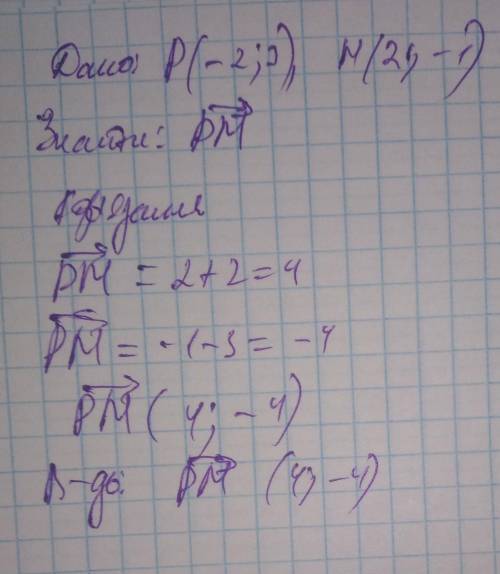 Дано: P(-2; 3), M(2; -1)
Знайти: PM
Розв'язання
PM = 2+2=4
PM = -1-3= -4
PM (4; -4)
В-дь: PM (4; -4)